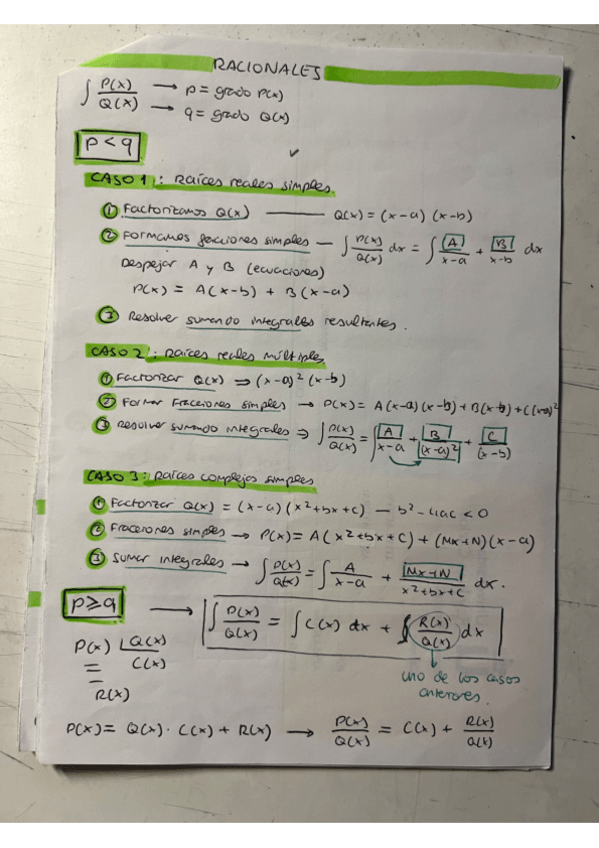 RACIONALES
∫ P(x)/Q(x) → p = grado P(x)
→ q = grado Q(x)
p < q
CASO 1: Raíces reales simples.
① Factorizamos Q(x) —— Q(x) = (x-a) (x-b)
② Formamos fracciones simples — ∫ P(x)/Q(x) dx = ∫ A/x-a + B/x-b dx
Despejar A y B (ecuaciones)
P(x) = A(x-b) + B(x-a)
③ Resolver sumando integrales resultantes.
CASO 2: Raíces reales múltiples
① Factorizar Q(x) ⇒ (x-a)² (x-b)
② Formar fracciones simples → P(x) = A(x-a)(x-b) + B(x-b) + C(x-a)²
③ Resolver sumando integrales ⇒ ∫ P(x)/Q(x) = ∫ A/x-a + B/(x-a)² + C/(x-b)
CASO 3: Raíces complejos simples
① Factorizar Q(x) = (x-a) (x²+bx+c) — b²-4ac < 0
② Fraciones simples → P(x) = A(x²+bx+c) + (Mx+N)(x-a)
③ Sumar integrales → ∫ P(x)/Q(x) = ∫ A/x-a + Mx+N/x²+bx+c dx.
p ≥ q → ∫ P(x)/Q(x) = ∫ C(x) dx + ∫ R(x)/Q(x) dx
P(x) | Q(x)
C(x)
R(x)
uno de los casos
anteriores.
P(x) = Q(x) · C(x) + R(x) → P(x)/Q(x) = C(x) + R(x)/Q(x)